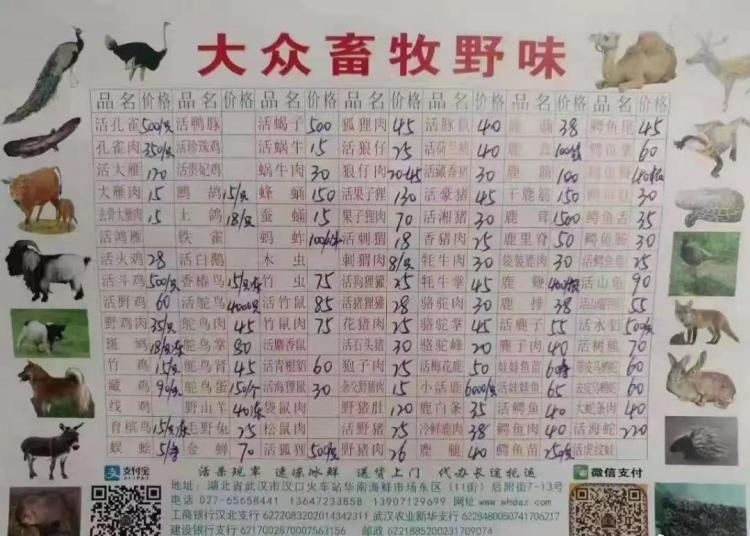 大众畜牧野味
品名 价格 品名 价格 品名 价格 品名 价格 品名 价格 品名 价格 品名 价格
活孔雀 500/只 活鸭豚 活蝎子 500 狐狸肉 45 活豚鼠 40 鹿 38 鳄鱼尾 45
孔雀肉 350/只 活珍珠鸡 活蜗牛 15 活狼仔 25 活荷兰猪 40 鹿 鳄鱼掌 60
活大雁 120 活贵妃鸡 蜗牛肉 30 狼仔肉 活藏香猪 30 鹿 100 鳄鱼
大雁肉 15 鹧鸪 15/只 蜂蛹 150 活果子狸 130 活豪猪 45 干鹿筋 150 鳄鱼 30
去骨大雁肉 15 土鸽 18/只 蚕蛹 15 果子狸肉 70 活湘猪 30 鹿茸 1500 鳄鱼舌 35
活鸿雁 铁雀 蚂蚱 活刺猬 18 香猪肉 25 鹿里脊 50 鳄鱼肠 30
活火鸡 28 活白鹅 木虫 刺猬肉 8/只 牦牛肉 30 袋装鹿肉 30 活鳄鱼龟 25
活斗鸡 500/只 香椿鸟 竹虫 75 活狗狸獾 25 牦牛掌 45 鹿鞭 活山龟 90
活野鸡 60 活鸵鸟 4000只 活竹鼠 85 活猪狸獾 28 骆驼肉 30 鹿排 38 55
野鸡肉 35/只 鸵鸟肉 45 竹鼠肉 75 花猪肉 25 骆驼掌 45 活麂子 55 活水蛇
斑鸠 鸵鸟掌 80 活麝香鼠 活石头猪 30 骆驼峰 20 麂子肉 40 活树熊 70
竹鸡 15/只 鸵鸟肾 45 活青根貂 60 狍子肉 25 活梅花鹿 50 娃娃鱼苗 带皮马蹄蛇 60
藏鸡 鸵鸟蛋 150/个 活海狸鼠 30 杂交野猪肉 15 小活鹿 6000/只 活娃娃鱼 65 去皮马蹄蛇 60
线鸡 野山羊 袋鼠肉 野猪肚 120 鹿白条 35 活鳄鱼 40 大蛇条肉 40
育槟鸟 生野兔 25 松鼠肉 活野猪 25 冷鲜鹿肉 38 鳄鱼肉 40 活海蛇 220
蜈蚣 金蝉 70 活狐狸 500/只 野猪肉 26 鹿腿 40 鳄鱼苗 活虎纹蛙
支付宝 ALIPAY 活杀现宰 速冻冰鲜 送货上门 代办长途托运 微信支付
地址：湖北省武汉市汉口火车站华南海鲜市场东区（11街）后附街7-13号
电话 027-65658441 13647233858 13907129699 网址 www.whdaz.com
工商银行汉北支行 6222083202014342311 武汉农业新华支行 6228480050741706217
建设银行支行 6217002870007563156 邮政 6221885220231709074